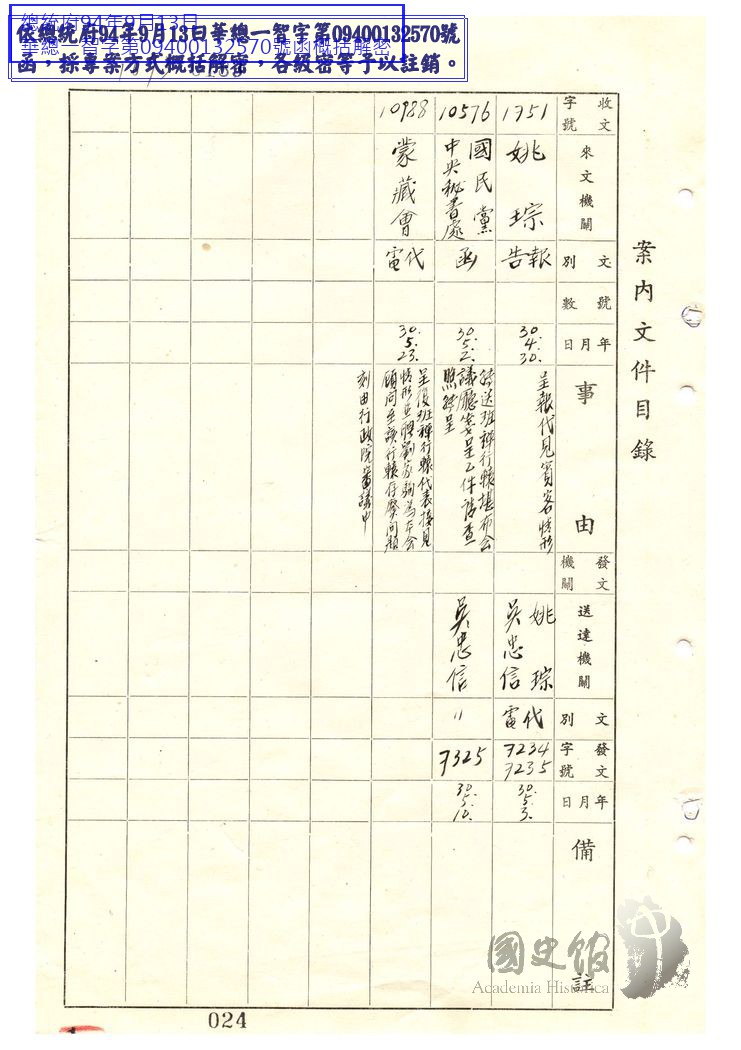 總統府94年9月13日
華總一智字第09400132570號函概括解密
依總統府94年9月13日華總一智字第09400132570號
函，採專案方式概括解密，各級密等予以註銷。
案內文件目錄
收文字號
來文機關
文別
號數
年月日
事由
發文機關
送達機關
文別
發文字號
年月日
備註
1751
姚琮
報告
30.4.30.
呈報代見賓客情形
姚琮
吳忠信
代電
7234
7235
30.5.3.
10576
國民黨
中央秘書處
函
30.5.2.
議廳
呈乙件請查
照
吳忠信
〃
7325
30.5.10.
10988
蒙藏會
代電
30.5.23.
呈復班禪行轅代表接見
情形並聘劉家駒為本會
顧問至該行轅存廢問題
刻由行政院審議中
國史館
Academia Historica
024